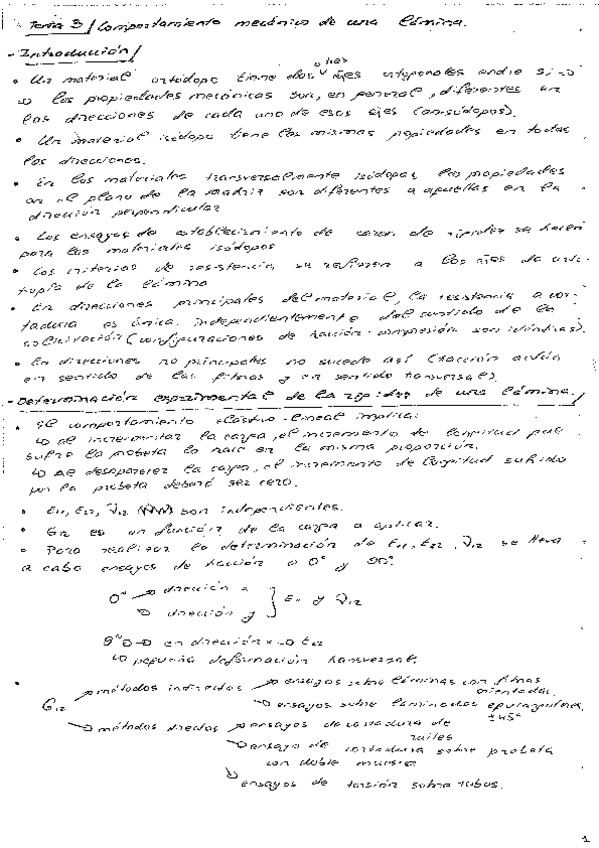 Tema 3 / Comportamiento mecánico de una lámina.
- Introducción /
• Un material ortótropo tiene dos ó tres ejes ortogonales entre sí
↳ las propiedades mecánicas son, en general, diferentes en
las direcciones de cada uno de esos ejes (anisótropos).
• Un material isótopo tiene las mismas propiedades en todas
las direcciones.
• En los materiales transversalmente isótopos, las propiedades
en el plano de la matriz son diferentes a aquellas en la
dirección perpendicular
• Los ensayos de establecimiento de de rigidez se hacen
para los materiales isótopos
• Los criterios de resistencia se refieren a los ejes de orto-
tropía de la lámina
• En direcciones principales del material, la resistencia a cor-
tadura es única independientemente del sentido de la
solicitación (configuraciones de tracción-compresión son idénticas).
• En direcciones no principales no sucede así (tracción actúa
en sentido de las fibras y en sentido transversal).
- Determinación experimental de la rigidez de una lámina. /
• El comportamiento elástico-lineal implica:
↳ al incrementar la carga, el incremento de longitud que
sufre la probeta lo hace en la misma proporción.
↳ Al desaparecer la carga, el incremento de longitud sufrido
por la probeta deberá ser cero.
• E11, E22, ν12 son independientes.
• G12 es en función de la carga a aplicar.
• Para realizar la determinación de E11, E22, ν12 se lleva
a cabo ensayos de tracción a 0° y 90°.
0° → dirección x
↳ dirección y } E11 y ν12
90° → en dirección x → E22
↳ pequeña deformación transversal.
• G12 → métodos indirectos → ensayos sobre láminas con fibras
orientadas.
→ ensayos sobre laminados equiangulares
±45°
→ métodos directos → ensayos de cortadura de
railes
→ ensayo de cortadura sobre probeta
con doble muesca
→ ensayos de torsión sobre tubos.
1